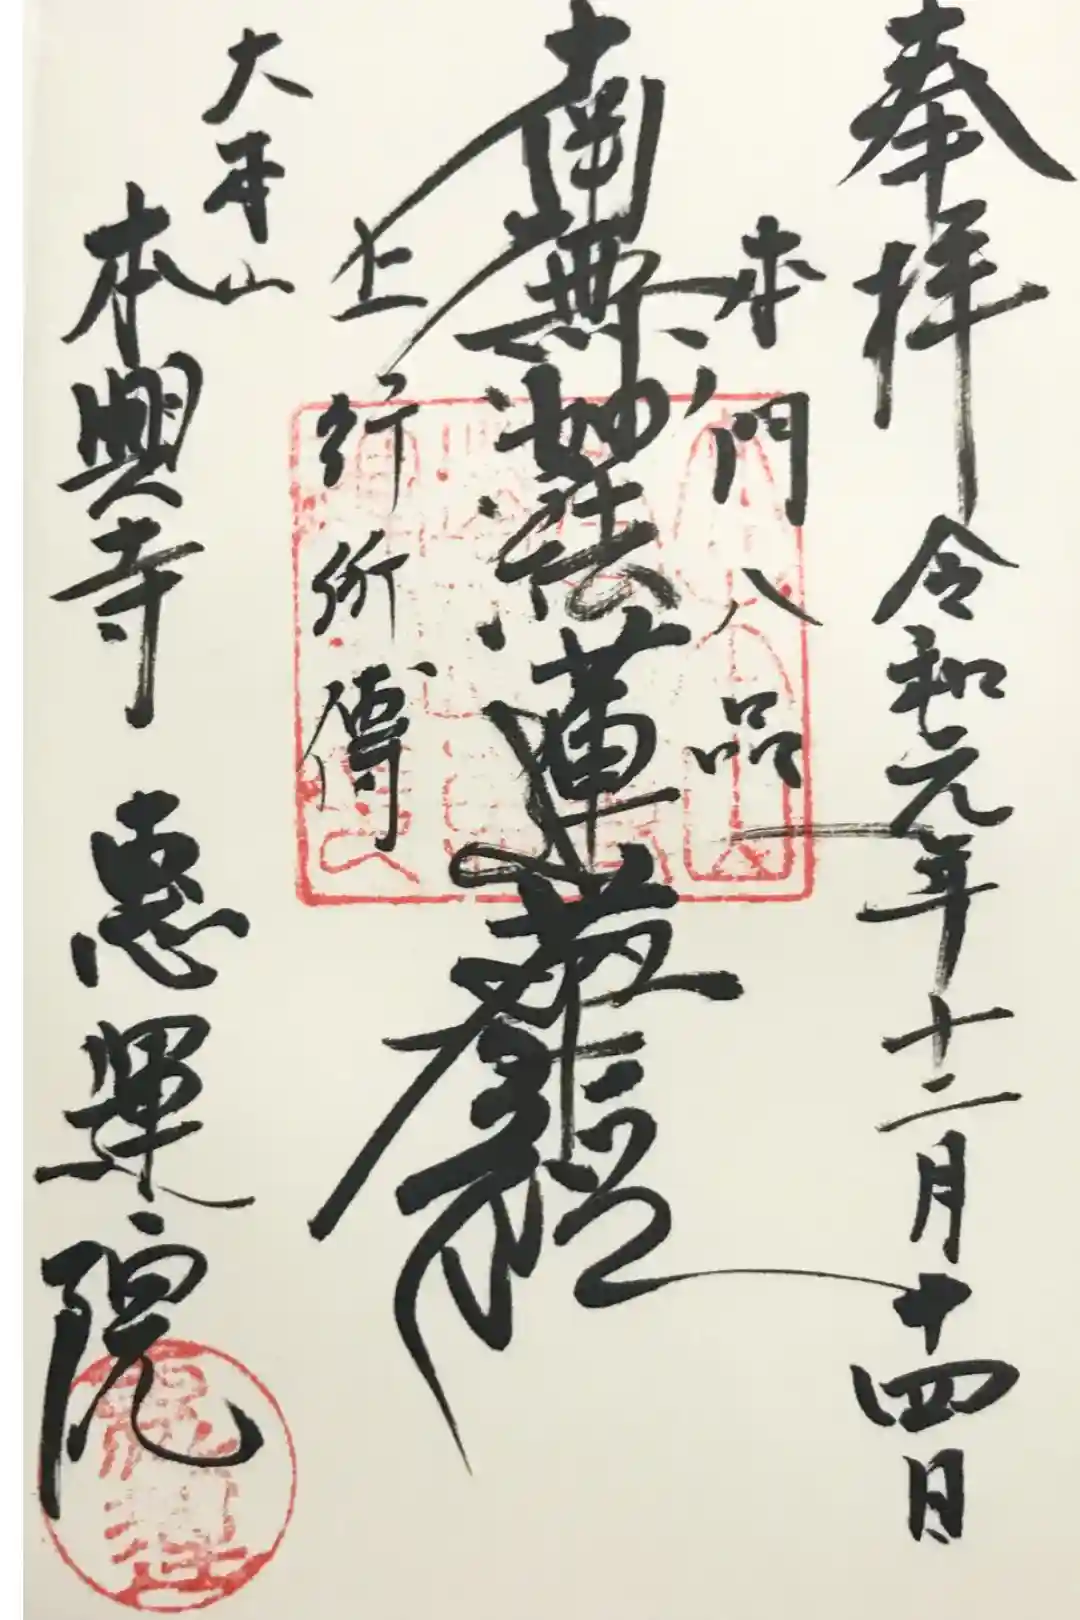 奉拝
令和元年十二月十四日
本門八品
南無妙法蓮華経
上行所傳
大本山
本興寺
恵運院